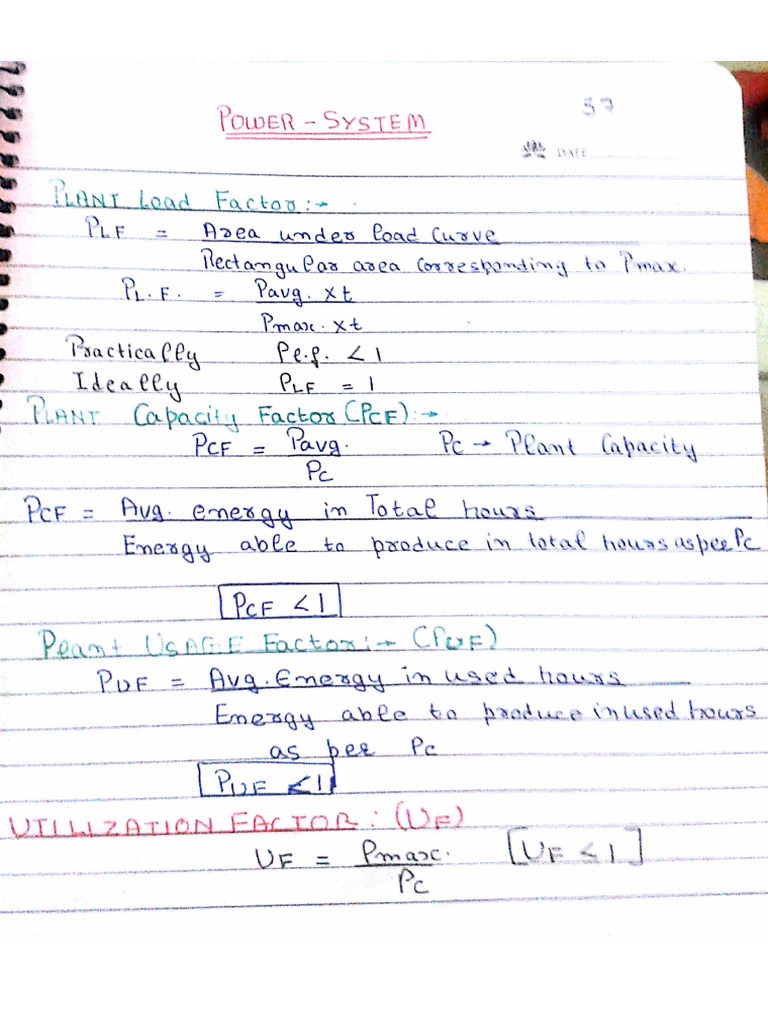 37
POWER - SYSTEM
DATE
PLANT Load Factor :→
PLF = Area under load Curve
Rectangular area corresponding to Pmax.
PL.F. = Pavg. xt
Pmax. xt
Practically Pl.f. < 1
Ideally PLF = 1
PLANT Capacity Factor (PCF) :→
PCF = Pavg. PC → Plant Capacity
PC
PCF = Avg. energy in Total hours
Energy able to produce in total hours as per Pc
PCF < 1
Plant USAGE Factor :→ (PUF)
PUF = Avg. Energy in used hours
Energy able to produce in used hours
as per Pc
PUF < 1
UTILIZATION FACTOR : (UF)
UF = Pmax. [UF < 1]
PC